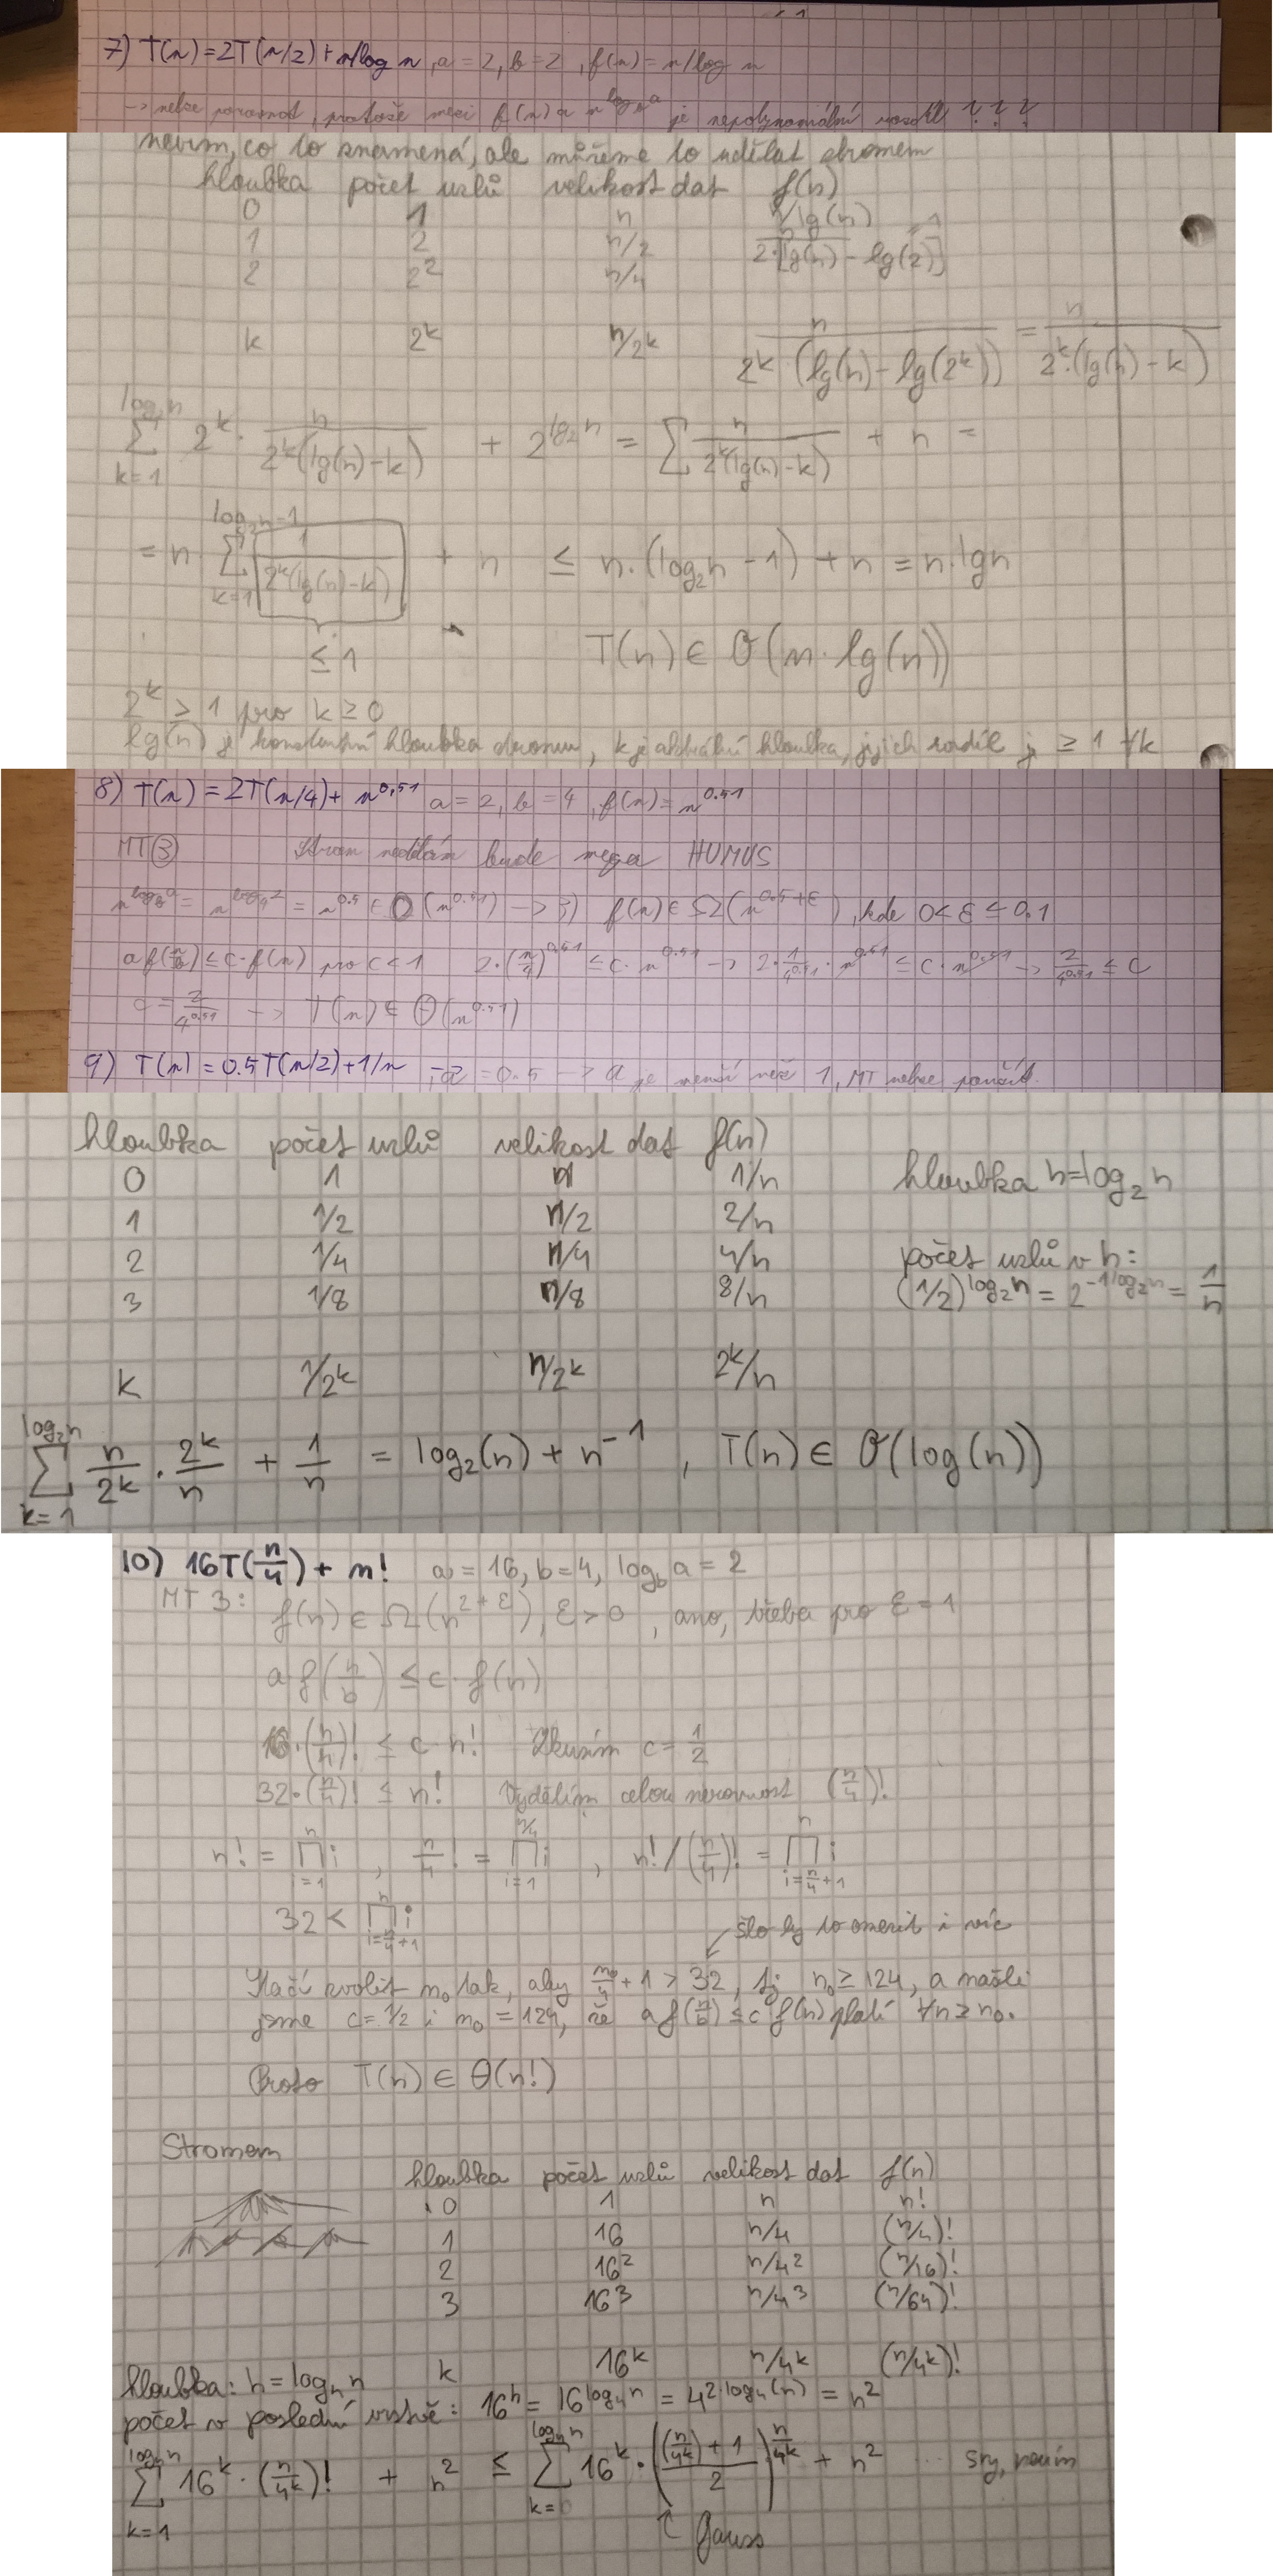 7) T(n)=2T(n/2)+n/log n, a=2, b=2, f(n)=n/log n
-> nelze porovnat, protože mezi f(n) a n^log_b a je nepolynomiální rozdíl ???
nevím, co to znamená, ale můžeme to udělat stromem
hloubka počet uzlů velikost dat f(n)
0 1 n n/lg(n)
1 2 n/2 n/2·[lg(n) - lg(2)] =1
2 2^2 n/4
k 2^k n/2^k n/(2^k (lg(n)-lg(2^k))) = n/(2^k·(lg(n)-k))
log_2 n ∑ k=1 2^k · n/(2^k(lg(n)-k)) + 2^lg_2 n = ∑ n/(2^k(lg(n)-k)) + n =
= n · log_2 n-1 ∑ k=1 1/(2^k(lg(n)-k)) + n ≤ n·(log_2 n - 1) + n = n·lg n
≤ 1 T(n) ∈ O(n·lg(n))
2^k ≥ 1 pro k ≥ 0
lg(n) je konstantní hloubka stromu, k je aktuální hloubka, jejich rozdíl je ≥ 1 ∀k
8) T(n) = 2T(n/4) + n^0,51 a=2, b=4, f(n)=n^0.51
MT③ Strom nedělám bude mega HUMUS
n^log_b a = n^log_4 2 = n^0.5 ∈ O(n^0.51) -> 3) f(n) ∈ Ω(n^0.5+ε), kde 0<ε≤0.1
a f(n/b) ≤ c·f(n) pro c<1 2·(n/4)^0.51 ≤ c·n^0.51 -> 2·1/4^0.51·n^0.51 ≤ c·n^0.51 -> 2/4^0.51 ≤ c
c = 2/4^0.51 -> T(n) ∈ Θ(n^0.51)
9) T(n) = 0.5T(n/2)+1/n ; a = 0.5 -> a je menší než 1, MT nelze použít.
hloubka počet uzlů velikost dat f(n)
0 1 n 1/n hloubka h=log_2 n
1 1/2 n/2 2/n
2 1/4 n/4 4/n počet uzlů v h:
3 1/8 n/8 8/n (1/2)^log_2 n = 2^-1log_2 n = 1/n
k 1/2^k n/2^k 2^k/n
log_2 n ∑ k=1 n/2^k · 2^k/n + 1/n = log_2(n) + n^-1, T(n) ∈ O(log(n))
10) 16T(n/4) + n! a=16, b=4, log_b a = 2
MT 3: f(n) ∈ Ω(n^2+ε), ε>0, ano, třeba pro ε=1
a f(n/b) ≤ c·f(n)
16·(n/4)! ≤ c·n! Zkusím c=1/2
32·(n/4)! ≤ n! Vydělím celou nerovnost (n/4)!
n! = n ∏ i=1 i, n/4! = n/4 ∏ i=1 i, n!/(n/4)! = n ∏ i=n/4+1 i
32 < n ∏ i=n/4+1 i
šlo by to omezit i víc
Stačí zvolit n_0 tak, aby n_0/4+1 > 32, tj. n_0 ≥ 124, a našli
jsme c=1/2 i n_0=124, že a f(n/b) ≤ c f(n) platí ∀n≥n_0.
Proto T(n) ∈ Θ(n!)
Stromem
hloubka počet uzlů velikost dat f(n)
0 1 n n!
1 16 n/4 (n/4)!
2 16^2 n/4^2 (n/16)!
3 16^3 n/4^3 (n/64)!
k 16^k n/4^k (n/4^k)!
hloubka: h=log_4 n
počet v poslední vrstvě: 16^h = 16^log_4 n = 4^2·log_4(n) = n^2
log_4 n ∑ k=1 16^k·(n/4^k)! + n^2 ≤ log_4 n ∑ k= 16^k·(((n/4^k)+1)/2)^n/4^k + n^2 ... sry, nevím
↑ Gauss